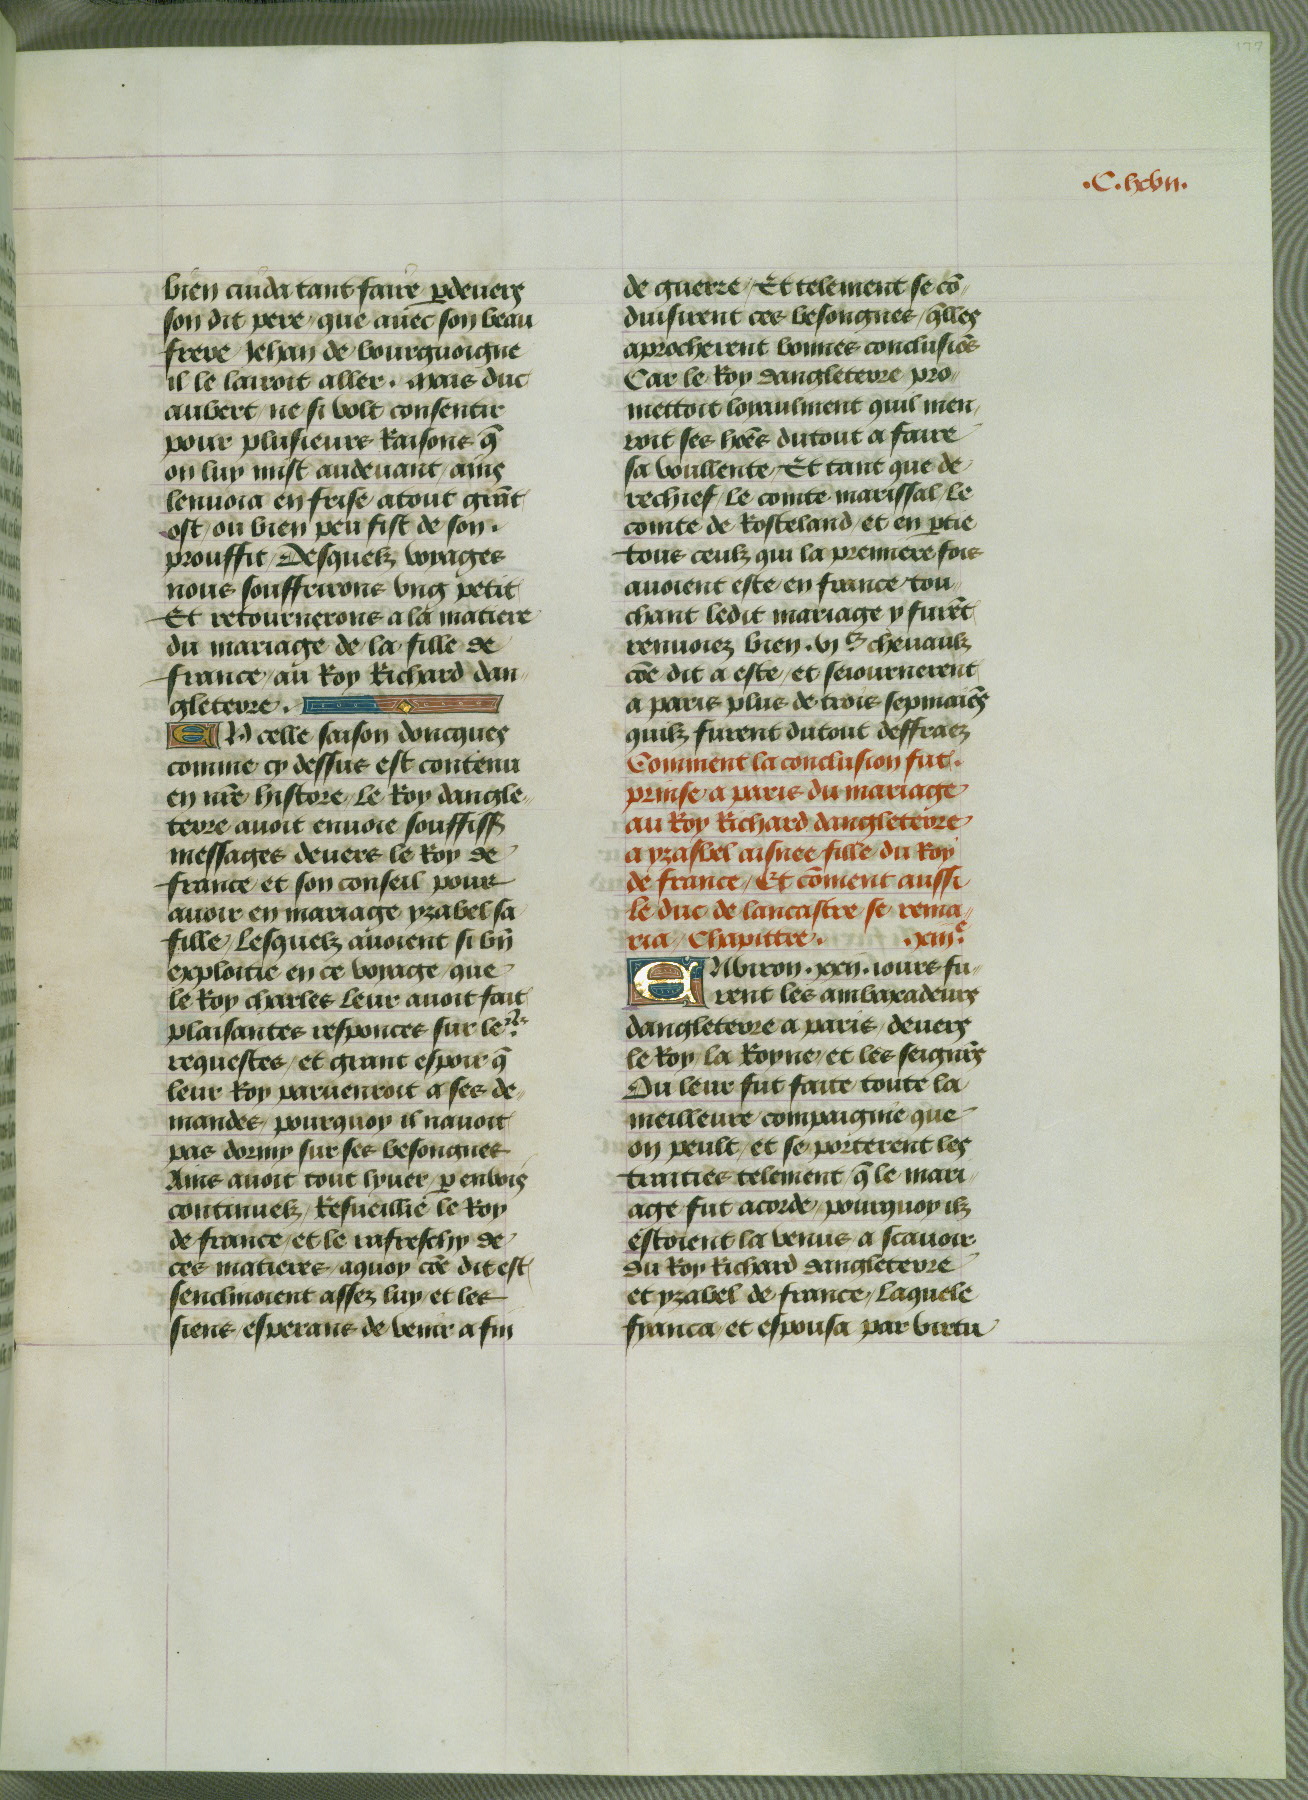 .C. lxxvii.
bien cuida tant faire ꝑdeuers
son dit pere / que auec son beau
frere Jehan de bourguoigne
il le lairoit aller . Mais duc
aubert ne si volt consentir
pour plusieurs Raisons q̃
on luy mist audeuant / ains
lenuoia en frise / atout grãt
ost / ou bien peu fist de son .
prouffit / Desquelz voyages
nous souffrirons vng petit
Et retournerons a la matiere
du mariage de la fille de
france / au Roy Richard dan
gleterre .
EN celle saison doncques
comme cy dessus est contenu
en nr̃e histore / Le Roy dangle
terre auoit enuoie souffiss̃
messages deuers le Roy de
france et son conseil pour
auoir en mariage yzabel sa
fille / Lesquelz auoient si bñ
exploitie en ce voyage / que
le Roy charles Leur auoit fait
plaisantes responces sur le^rs
requestes / et grant espoir q̃
leur Roy paruenroit a ses de
mandes / pourquoy il nauoit
pas dormy sur ses besongnes
Ains auoit tout lyuer / ꝑ enuois
continuelz / Resueillie le Roy
de france / et le rafreschy de
ces matieres / aquoy cõe dit est
senclinoient assez luy / et les
siens / esperans de venir a fin
de guerre / Et telement se cõ
duisirent ces besongnes / q̃lles
aprocherent bonnes conclusiõs
Car le Roy dangleterre pro
mettoit loyaulment quil men
roit ses hões dutout a faire
sa voullente / Et tant que de
rechief / Le comte marissal / Le
comte de Rosteland / et en ꝑtie
tous ceulz qui la premiere fois
auoient este / en france tou
chant ledit mariage y furẽt
renuoiez bien . vj ^c cheuaulz
cõe dit a este / et seiournerent
a paris plus de trois sepmaiẽs
quilz furent dutout deffraez
Comment la conclusion fut .
prinse a paris du mariage
au Roy Richard dangleterre
a yzasbel aisnee fille du Roy
de france / Et cõment aussi
le duc de lancastre se rema
ria / Chapittre . .xiij^e.
ENuiron . xxij . iours fu
rent les ambaxadeurs
dangleterre a paris / deuers
le Roy la Royne / et les seignr̃s
Ou leur fut faite toute la
meilleure compaignie que
on peult / et se porterent les
traities telement / q̃ le mari
age fut acorde / pourquoy ilz
estoient la venus a scauoir
du Roy Richard dangleterre
et yzabel de france / Laquele
franca / et espousa par virtu